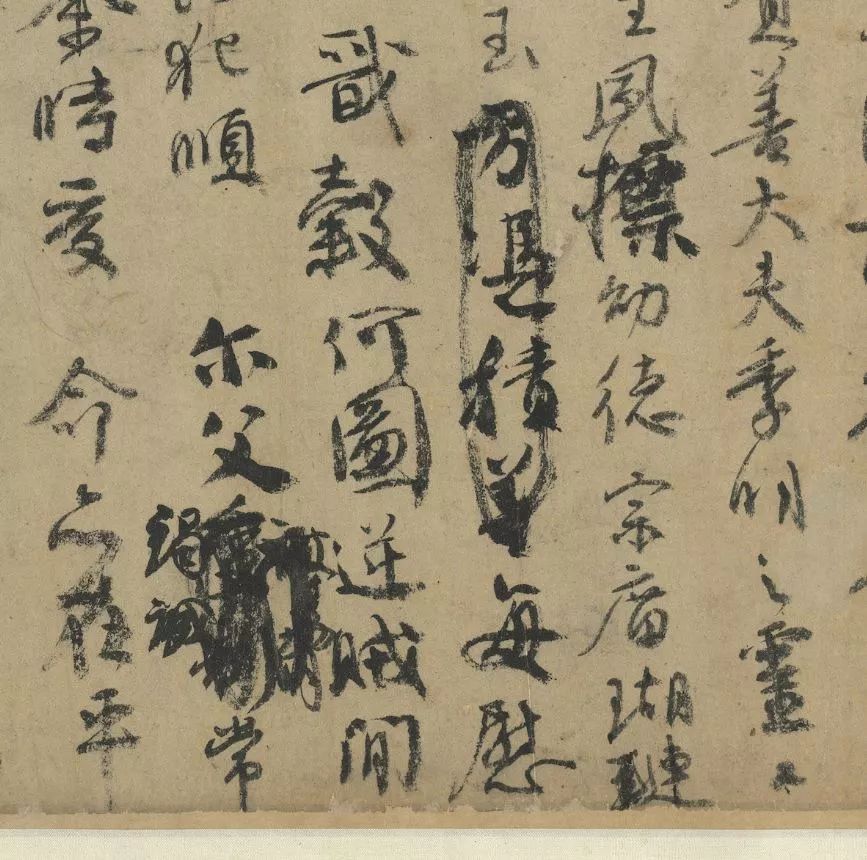 善大夫季明之靈曰
生夙標幼德宗庿瑚璉
玉方憑積善每慰
戩穀何圖逆賊間
犯順尔父竭誠常
余時受命亦在平